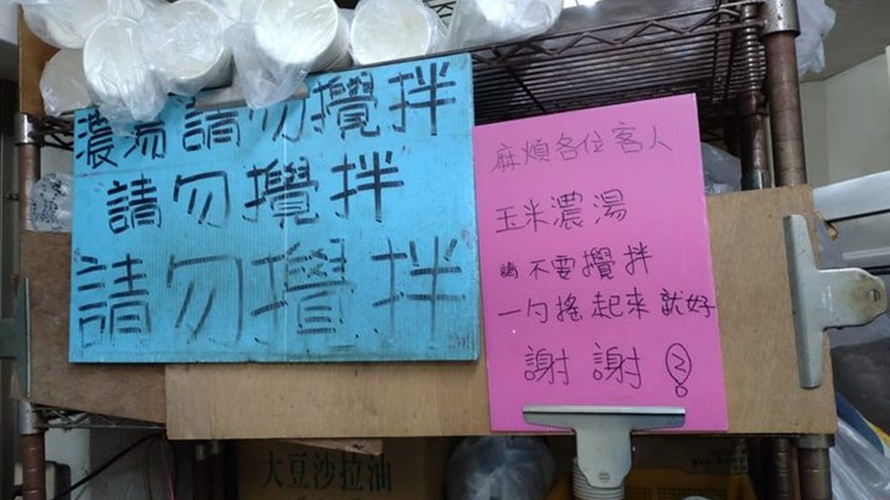 濃湯請勿攪拌
請勿攪拌
請勿攪拌
麻煩各位客人
玉米濃湯
請不要攪拌
一勺搖起來就好
謝謝
大豆沙拉油